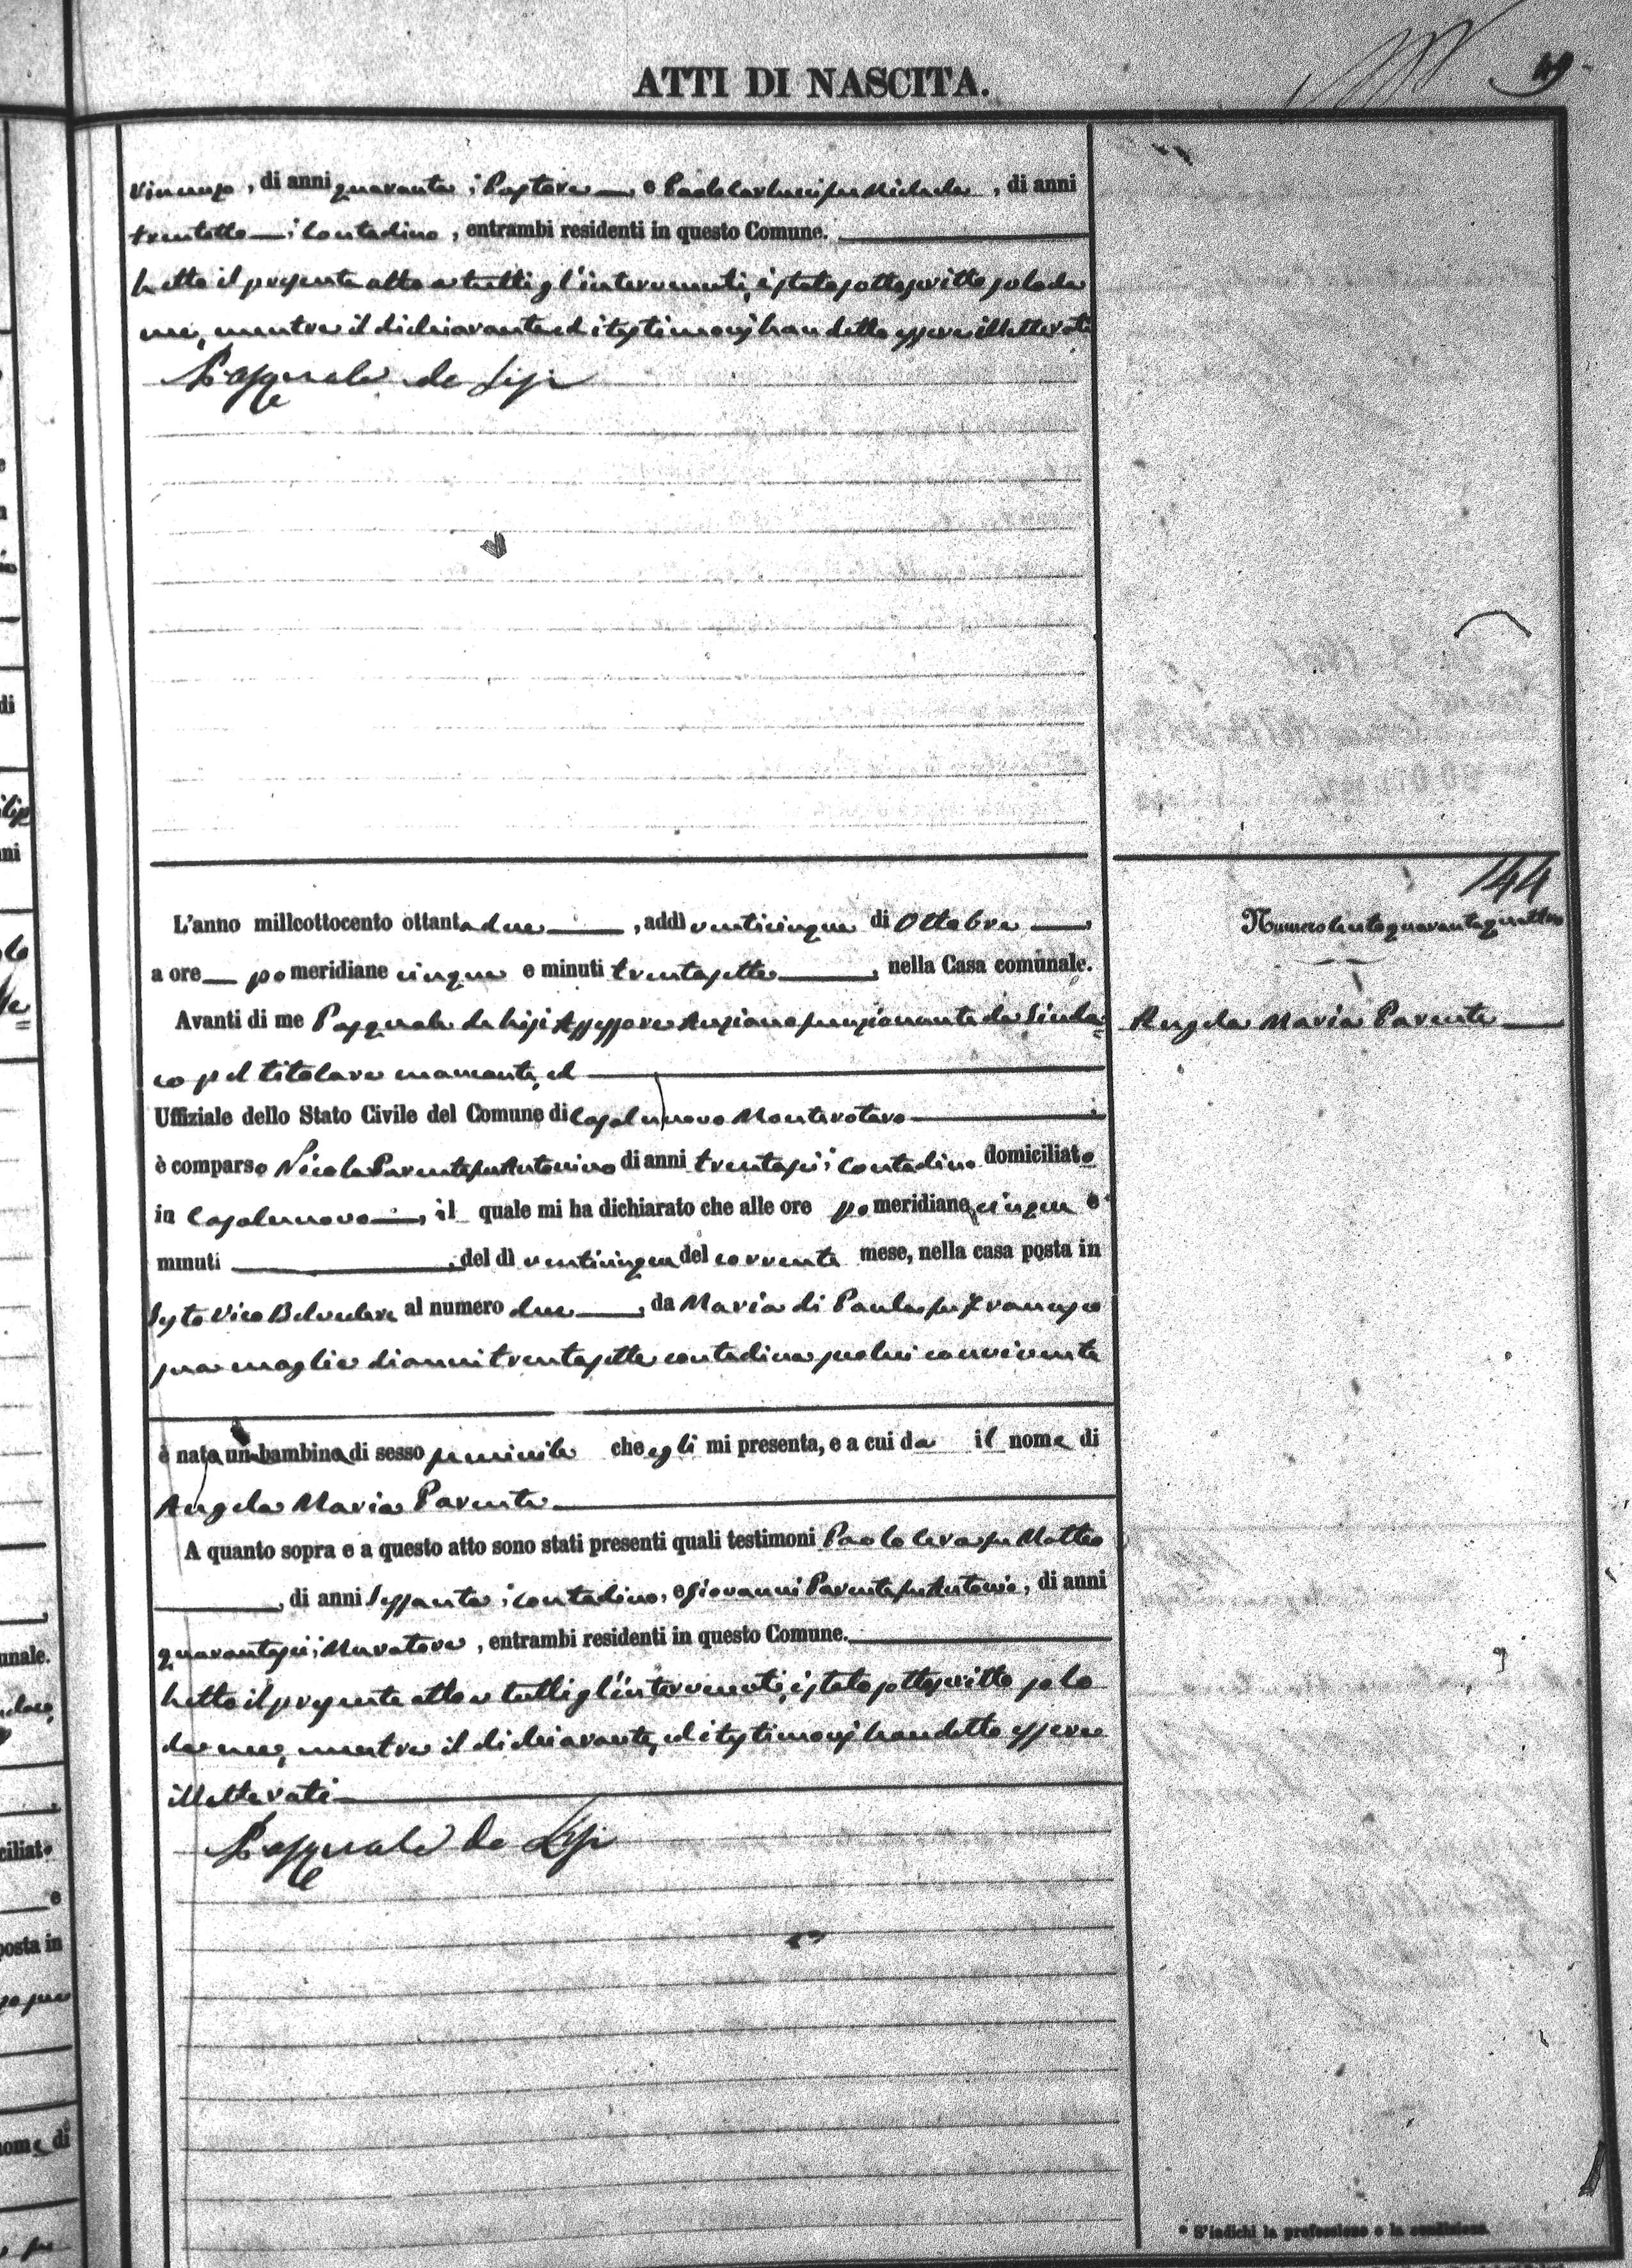 ATTI DI NASCITA.
49
Vincenzo, di anni quaranta; Pastore — e Paolo Carlucci fu Michele, di anni
trentotto — ; Contadino, entrambi residenti in questo Comune.
Letto il presente atto a tutti gl'intervenuti, è stato sottoscritto solo da
me, mentre il dichiarante ed i testimonj han detto essere illetterati
Pasquale de Lisi
144
L'anno milleottocento ottantadue —, addì venticinque di Ottobre —
Numero Centoquarantaquattro
a ore — pomeridiane cinque e minuti trentasette —, nella Casa comunale.
Avanti di me Pasquale de Lisi Assessore Anziano funzionante da Sinda=
Angela Maria Parente —
co pel titolare mancante, ed —
Uffiziale dello Stato Civile del Comune di Casalnuovo Monterotaro —
è comparso Nicola Parente fu Antonino di anni trentasei; Contadino domiciliato
in Casalnuovo —, il quale mi ha dichiarato che alle ore pomeridiane cinque e
minuti —, del dì venticinque del corrente mese, nella casa posta in
Sesto Vico Belvedere al numero due —, da Maria di Paola fu Francesco
sua moglie di anni trentasette contadina seco lui convivente
è nata una bambina di sesso feminile che egli mi presenta, e a cui da il nome di
Angela Maria Parente —
A quanto sopra e a questo atto sono stati presenti quali testimoni Paolo Ceva fu Matteo
—, di anni Sessanta; contadino, e Giovanni Parente fu Antonio, di anni
quarantasei; Muratore, entrambi residenti in questo Comune. —
Letto il presente atto a tutti gl'intervenuti, è stato sottoscritto solo
da me, mentre il dichiarante, ed i testimonj han detto essere
illetterati —
Pasquale de Lisi
* S'indichi la professione o la condizione.